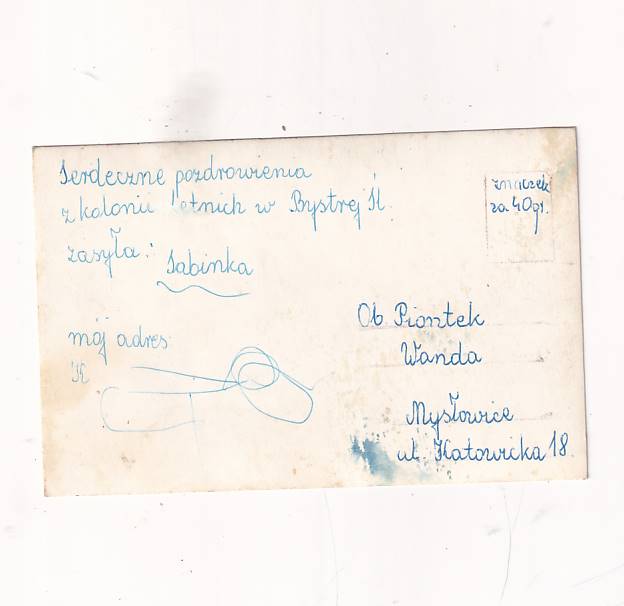 Serdeczne pozdrowienia
z kolonii letnich w Bystrej Śl.
zasyła:
Sabinka
mój adres:
znaczek
za 40 gr.
Ob Piontek
Wanda
Mysłowice
ul. Katowicka 18.